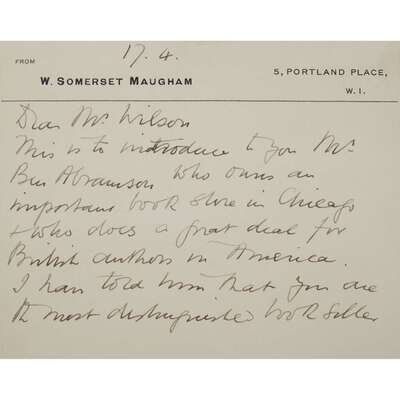 17.4.
FROM
W. SOMERSET MAUGHAM
5, PORTLAND PLACE,
W. 1.
Dear Mr Wilson
This is to introduce to you Mr
Ben Abramson who owns an
important book store in Chicago
& who does a great deal for
British authors in America.
I have told him that you are
the most distinguished book seller